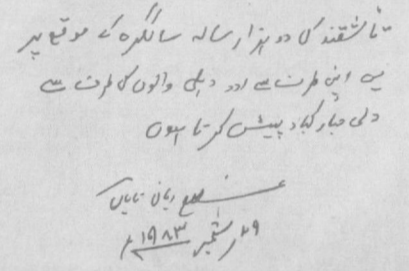 تاشقند کی دو ہزار سالہ سالگرہ کے موقع پر
میں اپنی طرف سے اور دہلی والوں کی طرف سے
دلی مبارکباد پیش کرتا ہوں
غلام ربانی تاباں
۲۹ ستمبر ۱۹۸۳ء